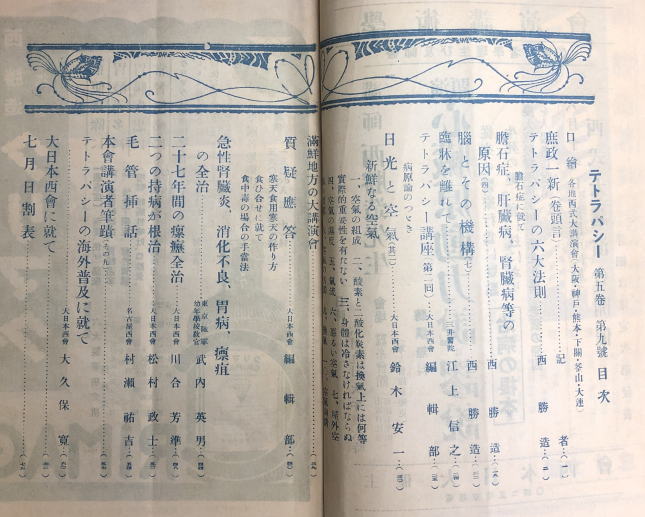 テトラパシー 第五卷 第九號 目次
口繪 各地西式大講演會(大阪・神戸・熊本・下關・釜山・大連)
庶政一新(卷頭言)…記者…(一)
テトラパシーの六大法則…西勝造…(二)
膽石症に就て
膽石症、肝臓病、腎臓病等の
原因(四)…西勝造
腦とその機構(七)…三井醫院 江上信之
臨牀を離れて…西勝造
テトラパシー講座(第二回)…大日本西會 編輯部
病原論のつゞき
日光と空氣(其二)…大日本西會 鈴木安一
新鮮なる空氣
一、空氣の組成 二、酸素と二酸化炭素は換氣上には何等
實際的重要性を有たない 三、身體は冷さなければならぬ
四、空氣の濕度 五、氣流 六、惡るい空氣 七、屋外空
滿鮮地方の大講演會
質疑應答…大日本西會 編輯部
寒天食用寒天の作り方
食ひ合せに就て
食中毒の場合の手當法
急性腎臓炎、消化不良、胃病、瘭疽
の全治…東京陸軍幼年學校教官 武内英男
二十七年間の瘰癧全治…大日本西會 川合芳準
二つの持病が根治…大日本西會 松村政士
毛管挿話…名古屋西會 村瀬祐吉
本會講演者筆蹟(その九)
テトラパシーの海外普及に就て
大日本西會に就て…大日本西會 大久保寛
七月日割表